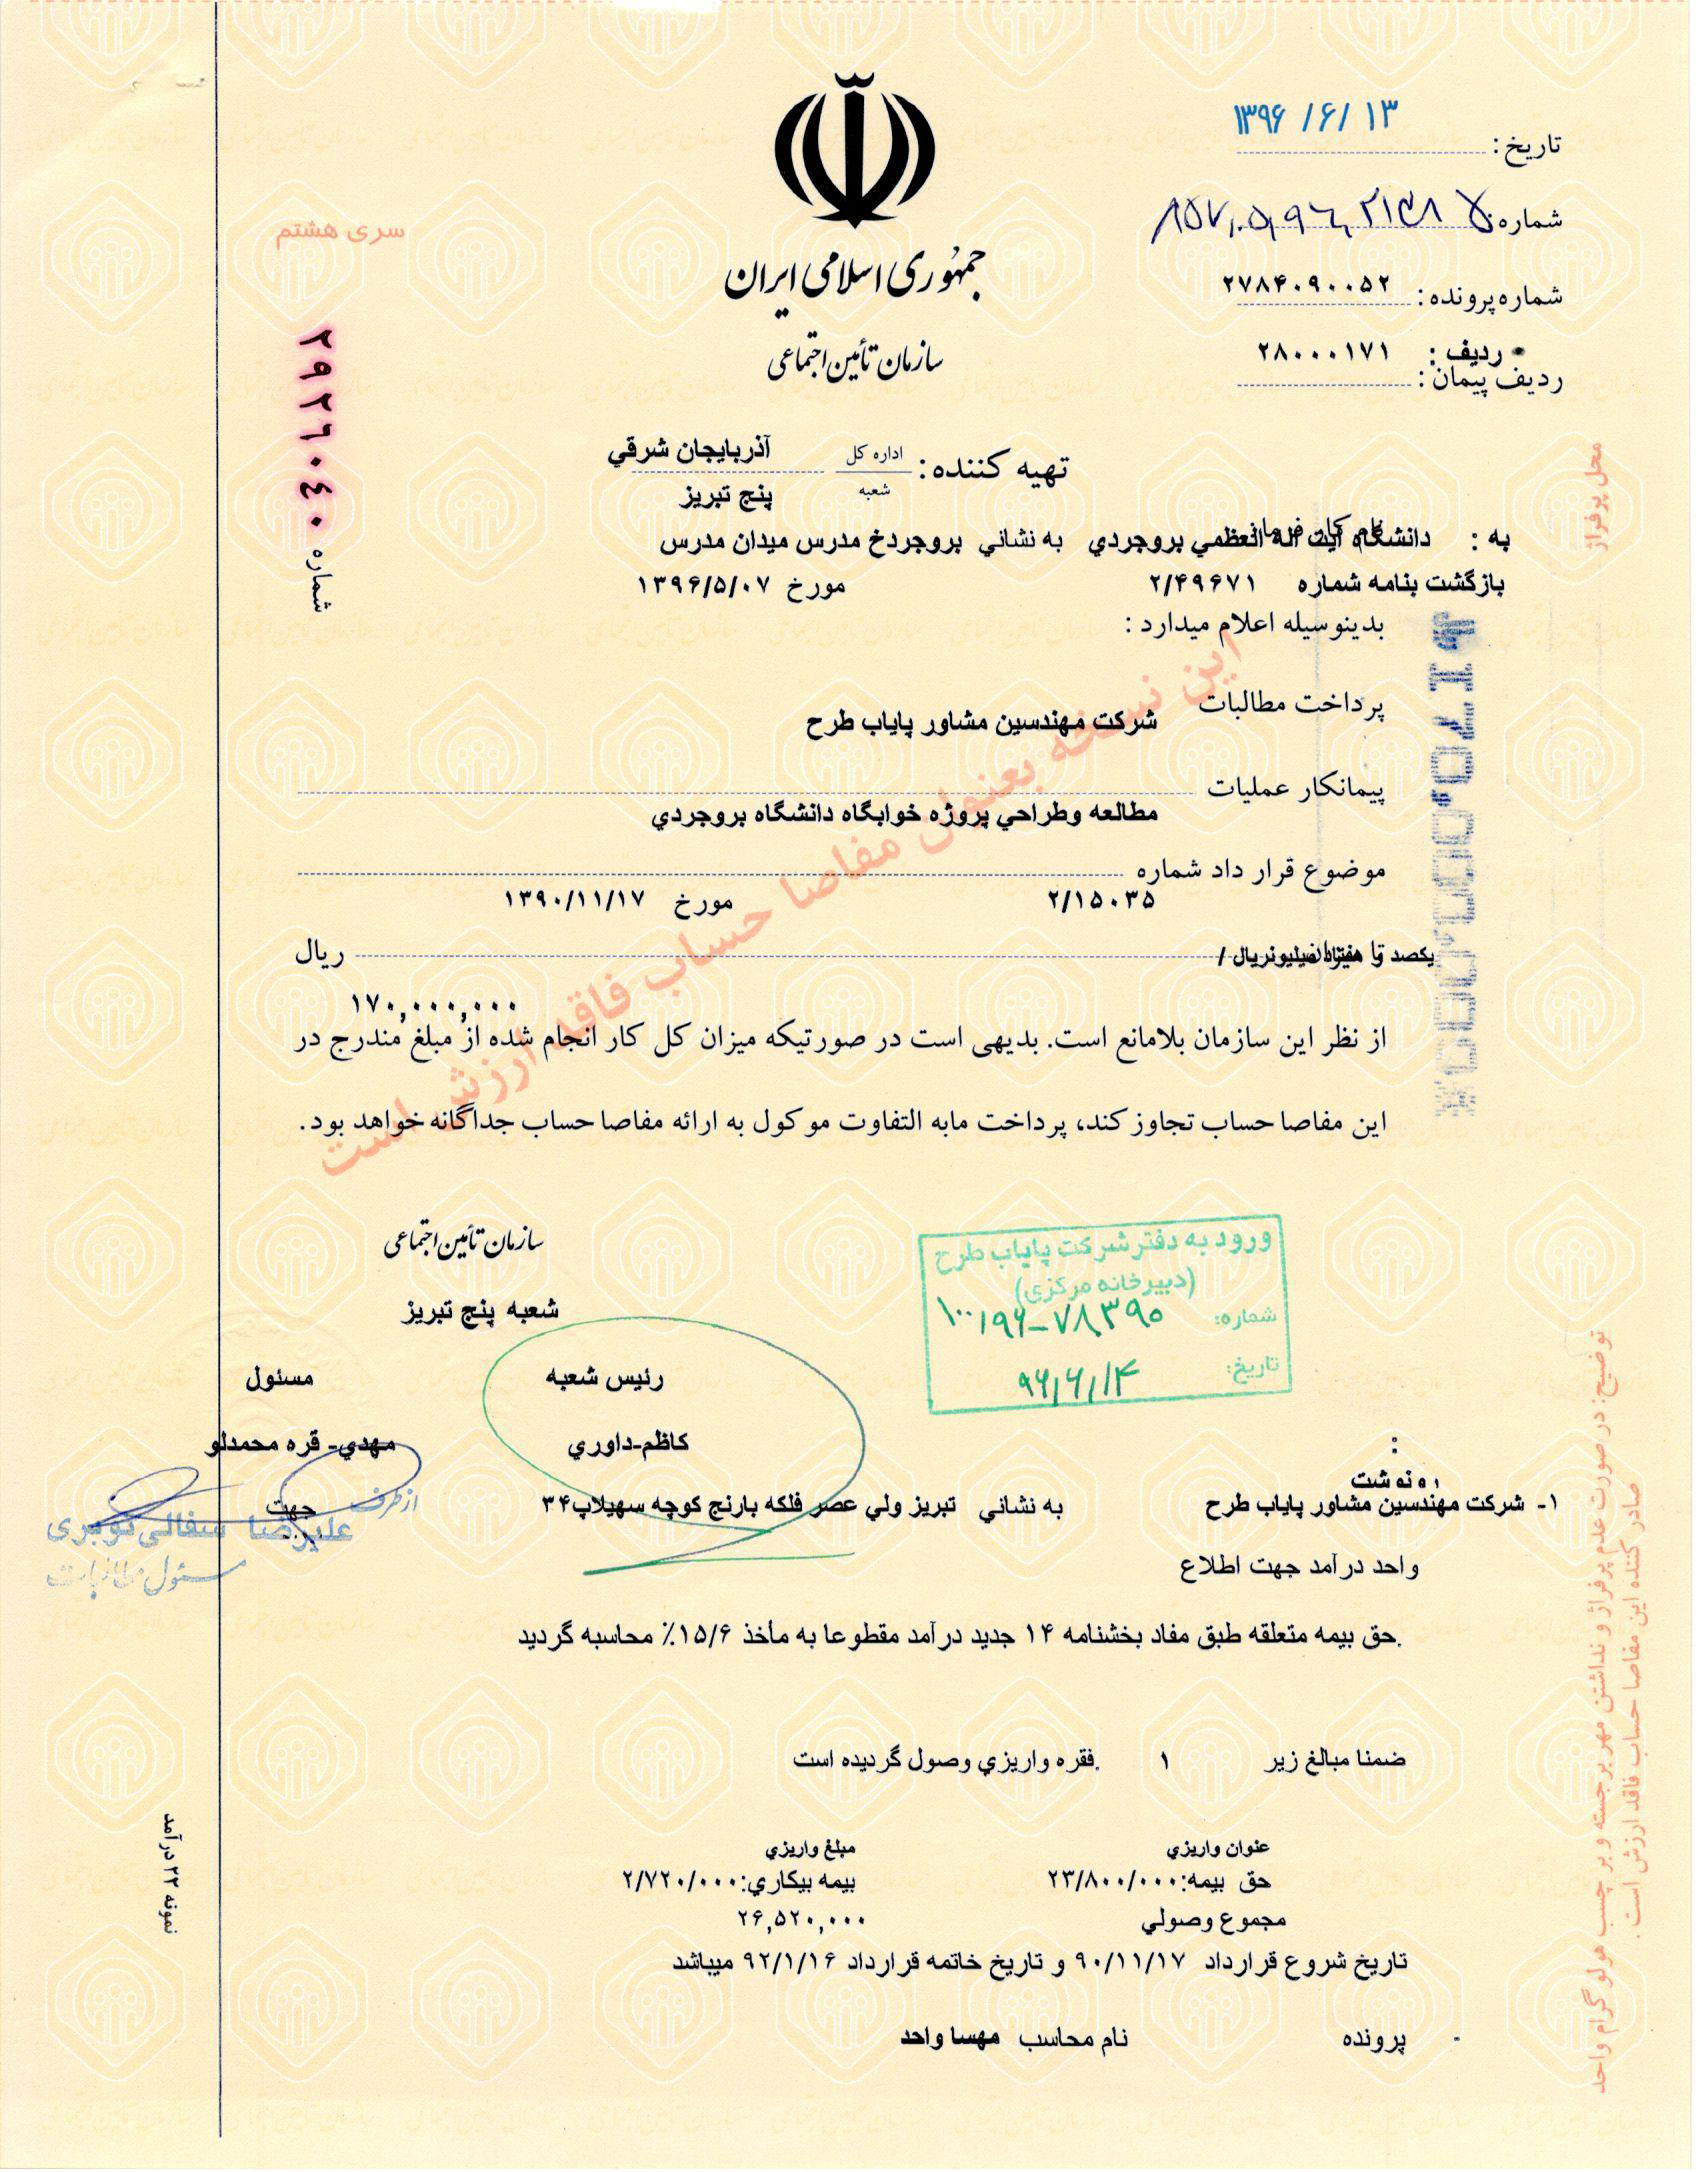 ۱۳۹۶/۶/۱۳
تاریخ :
شماره :
شماره پرونده : ۲۷۸۴۰۹۰۰۵۲
ردیف : ۲۸۰۰۰۱۷۱
ردیف پیمان :
جمهوری اسلامی ایران
سازمان تأمین اجتماعی
سری هشتم
شماره ۲۹۲۶۰۴۰
تهیه کننده : اداره کل آذربایجان شرقي
شعبه پنج تبریز
محل پرفراژ
به : نام کارفرما دانشگاه آیت اله العظمي بروجردي به نشاني بروجردخ مدرس میدان مدرس
بازگشت بنامه شماره ۲/۴۹۶۷۱ مورخ ۱۳۹۶/۵/۰۷
بدینوسیله اعلام میدارد :
پرداخت مطالبات شرکت مهندسین مشاور پایاب طرح
پیمانکار عملیات
مطالعه وطراحي پروژه خوابگاه دانشگاه بروجردي
موضوع قرار داد شماره
۲/۱۵۰۳۵ مورخ ۱۳۹۰/۱۱/۱۷
تا میزان یکصد و هفتاد میلیون ریال / ریال
۱۷۰,۰۰۰,۰۰۰
از نظر این سازمان بلامانع است. بدیهی است در صورتیکه میزان کل کار انجام شده از مبلغ مندرج در
این مفاصا حساب تجاوز کند، پرداخت مابه التفاوت موکول به ارائه مفاصا حساب جداگانه خواهد بود.
این نسخه بعنوان مفاصا حساب فاقد ارزش است
سازمان تأمین اجتماعی
شعبه پنج تبریز
ورود به دفتر شرکت پایاب طرح
(دبیرخانه مرکزی)
شماره: ۱۰۰/۹۶-۷۸۳۹۰
تاریخ: ۹۶/۶/۱۴
رئیس شعبه
مسئول
کاظم-داوري
مهدي- قره محمدلو
:
رونوشت
۱- شرکت مهندسین مشاور پایاب طرح به نشاني تبریز ولي عصر فلکه بارنج کوچه سهیلاپ۳۴
جهت
از طرف
علیرضا
مسئول
واحد درآمد جهت اطلاع
حق بیمه متعلقه طبق مفاد بخشنامه ۱۴ جدید درآمد مقطوعا به مأخذ ۱۵/۶٪ محاسبه گردید.
ضمنا مبالغ زیر ۱ فقره واریزي وصول گردیده است.
عنوان واریزي مبلغ واریزي
حق بیمه:۲۳/۸۰۰/۰۰۰ بیمه بیکاري:۲/۷۲۰/۰۰۰
مجموع وصولي ۲۶,۵۲۰,۰۰۰
تاریخ شروع قرارداد ۹۰/۱۱/۱۷ و تاریخ خاتمه قرارداد ۹۲/۱/۱۶ میباشد
- پرونده نام محاسب مهسا واحد
نمونه ۲۲ درآمد
توضیح: در صورت عدم پرفراژ و نداشتن مهر برجسته و برچسب هولوگرام واحد
صادر کننده این مفاصا حساب فاقد ارزش است.